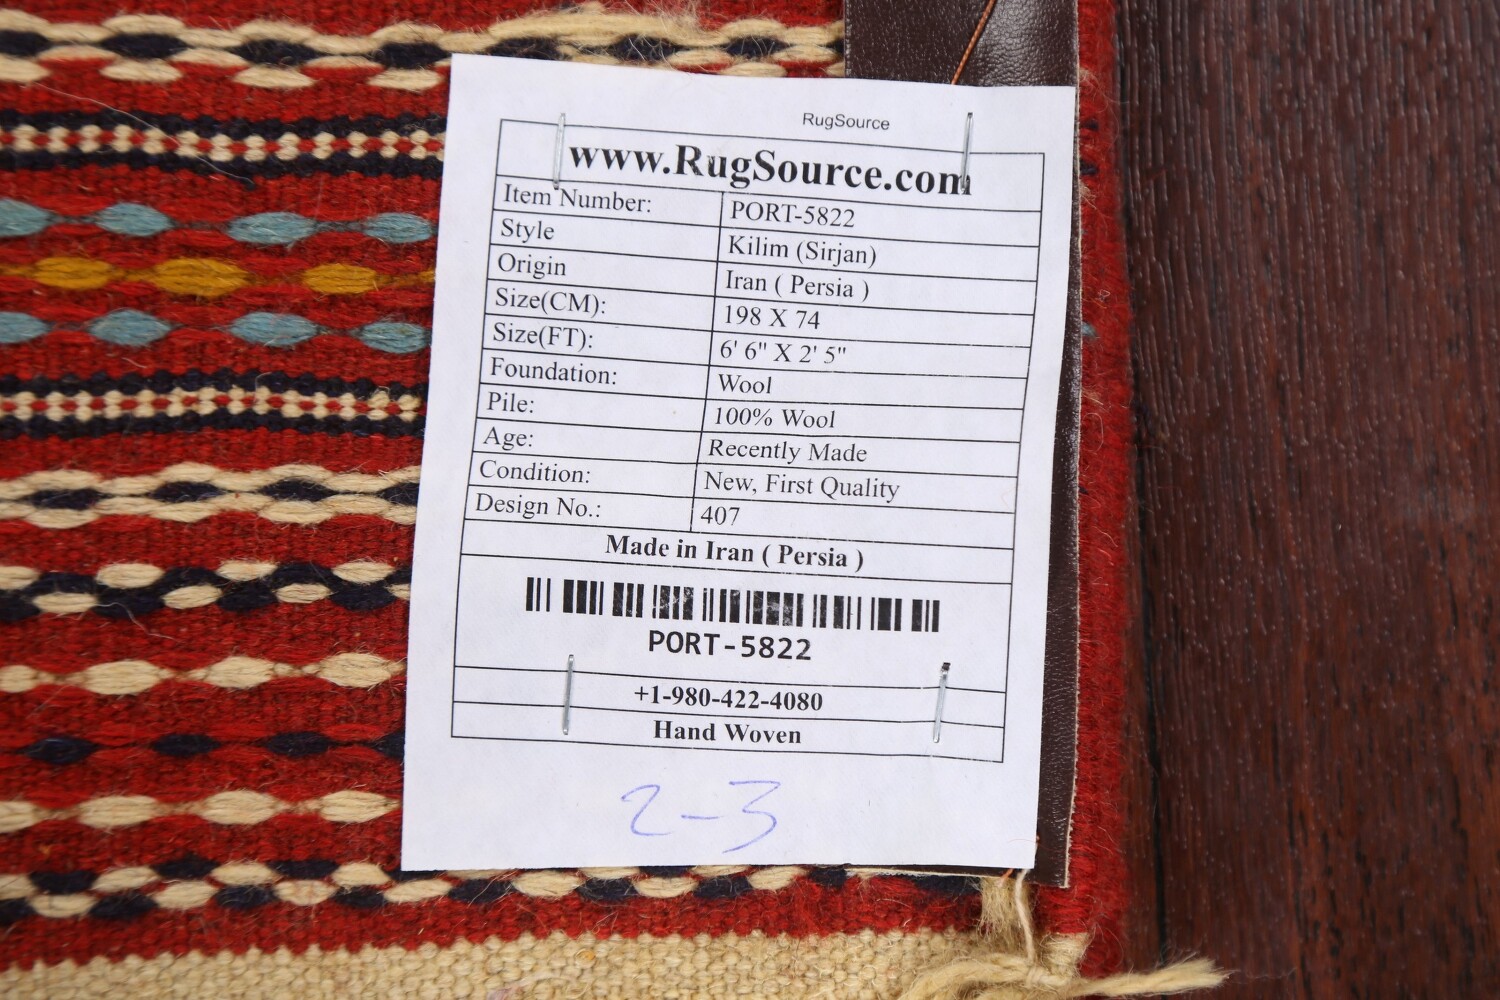 RugSource
www.RugSource.com
Item Number: PORT-5822
Style Kilim (Sirjan)
Origin Iran ( Persia )
Size(CM): 198 X 74
Size(FT): 6' 6" X 2' 5"
Foundation: Wool
Pile: 100% Wool
Age: Recently Made
Condition: New, First Quality
Design No.: 407
Made in Iran ( Persia )
PORT-5822
+1-980-422-4080
Hand Woven
2-3